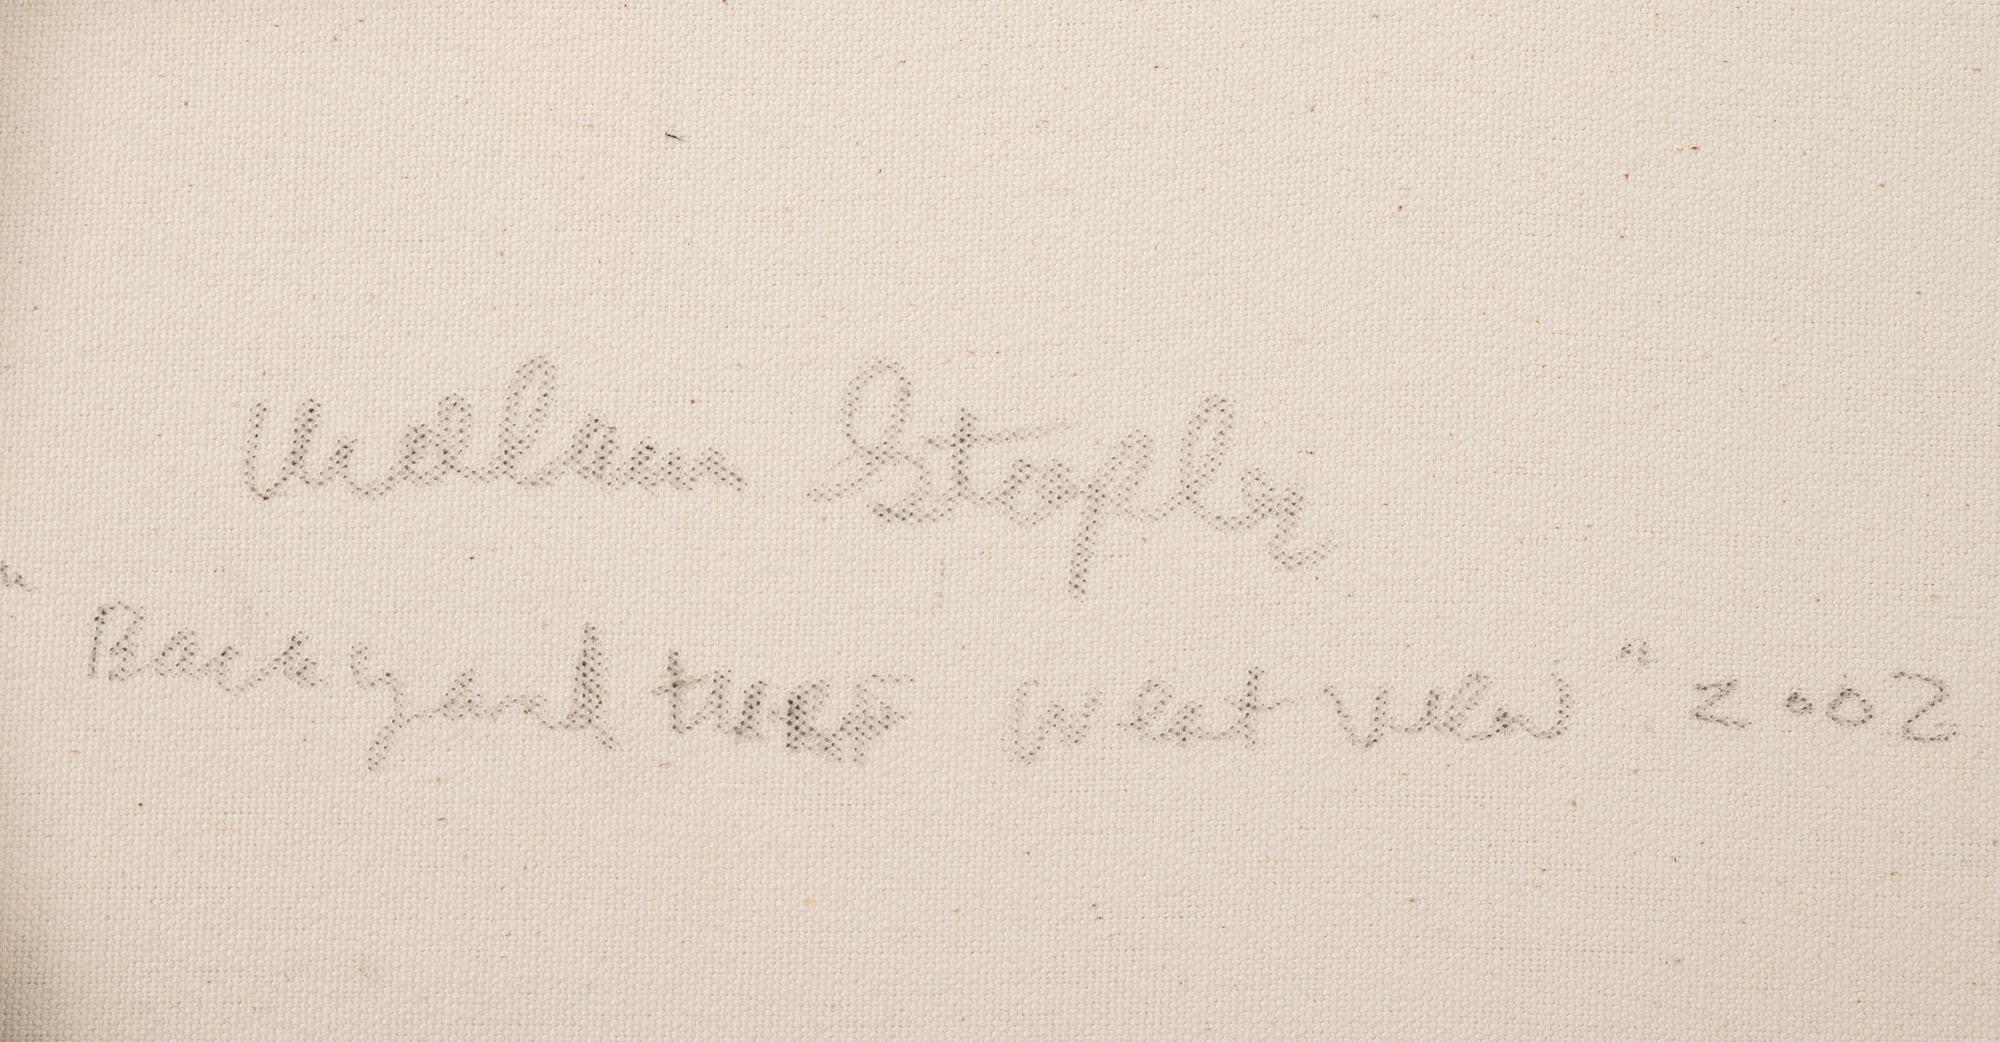 William Staples
"Backyard turf west view" 2002